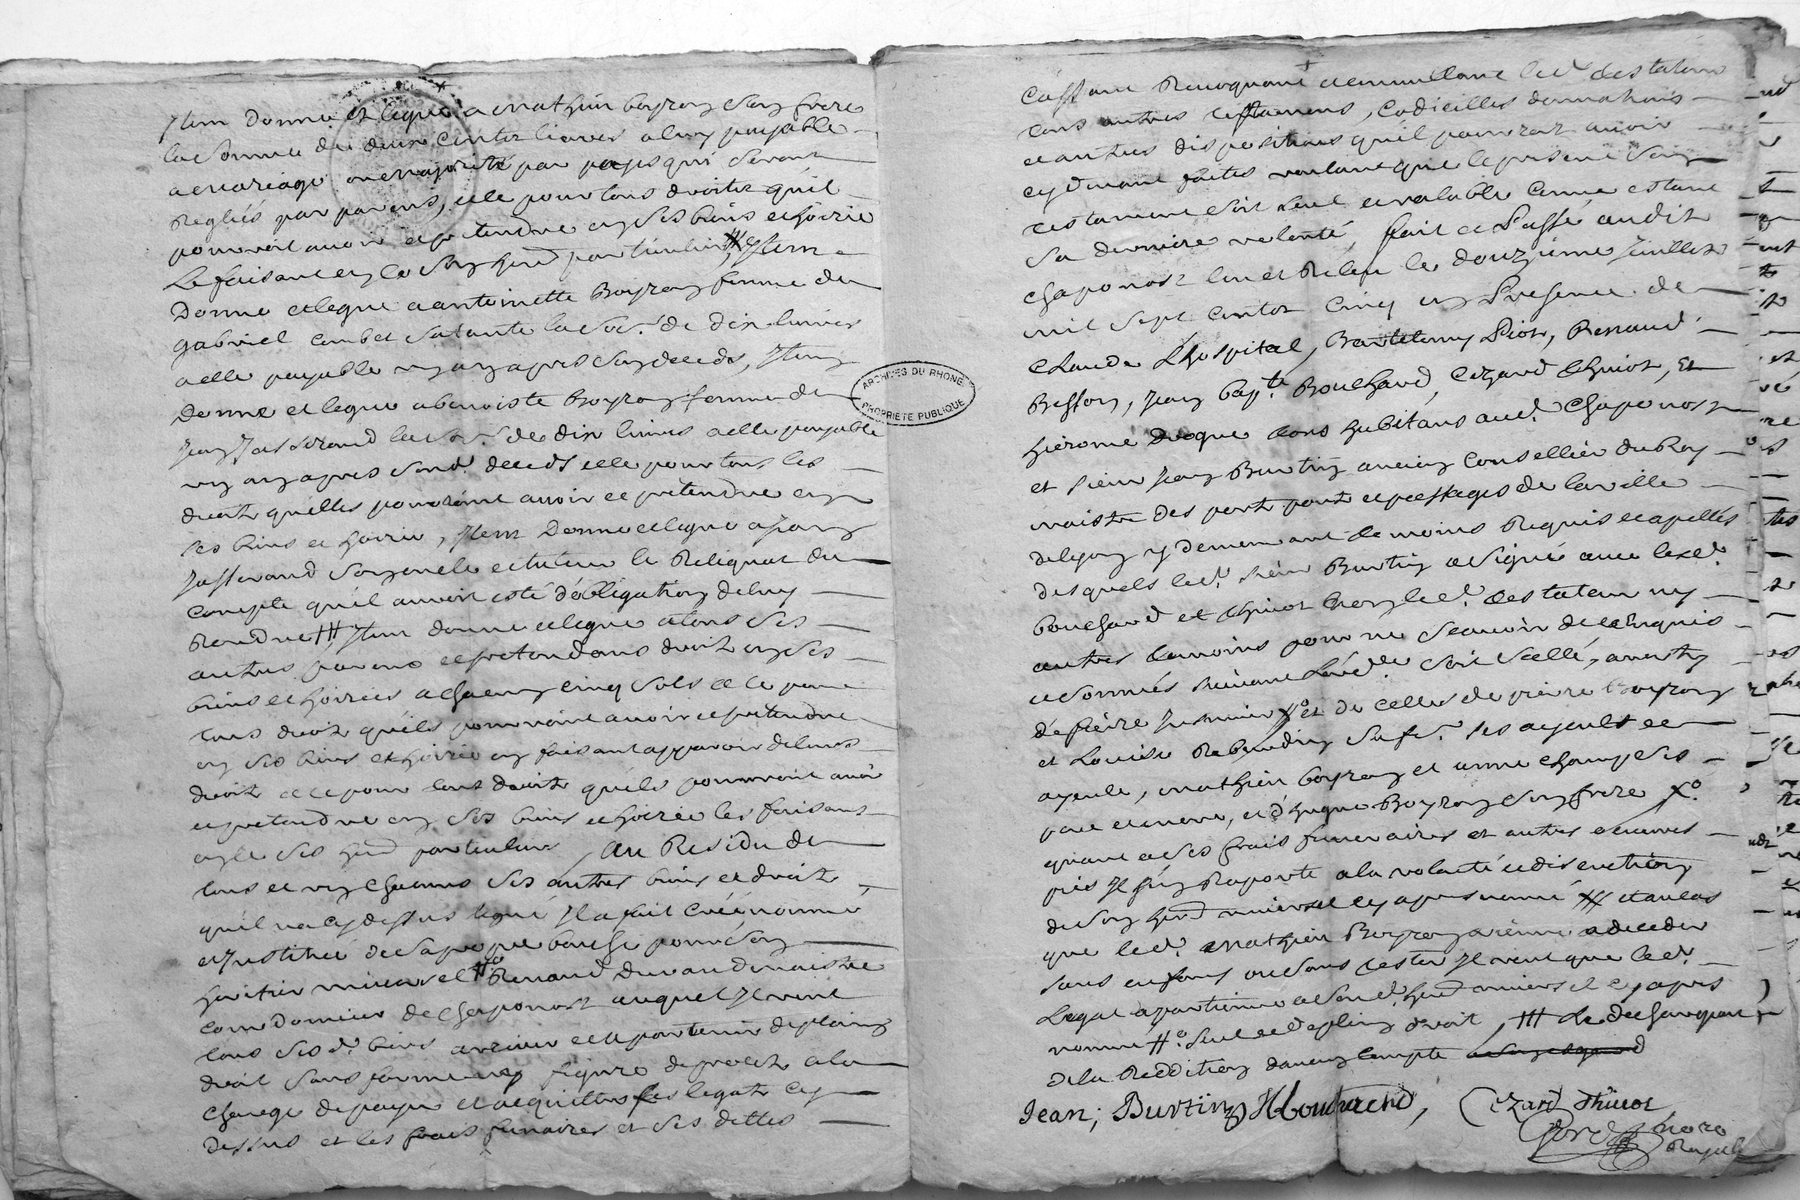 Item donne et legue a mathieu boyron son frere
la somme de deux centz livres a luy payable
a mariage ou majorité par payes qui seront
Reglées par parens, et ce pour tous droitz qu'il
pourroit avoir et pretendre en ses biens et hoirie
Le faisant en ce son herd particulier, # Item
Donne et legue a antoinette Boyron femme de
gabriel combet sa tante la so.e de dix livres
a elle payable un an apres son deceds, Item
Donne et legue a benoiste Boyron femme de
Jean Jasserand la so.e de dix livres a elle payable
un an apres sond. deceds et ce pour tous les
droitz quelles pourroint avoir et pretendre en
ses biens et hoirie, Item Donne et legue a Jean
Jasserand son oncle et tuteur le Reliquat du
compte qu'il auroit esté d'obligation de luy
Rendre ## Item donne et legue a tous ses
autres parens et pretendans droitz en ses
biens et hoiries a chacun cinq sols et ce pour
tous droitz qu'ils pourroint avoir et pretendre
en ses biens et hoirie en faisant apparoir de leurs
droitz et ce pour tous droitz qu'ils pourroint avoir
et pretendre en ses biens et hoirie les faisant
en ce ses herd particuliers, Au Residu de
tous et un chacuns ses autres biens et droitz
qu'il n'a cy dessus legué Il a fait créé nommé
et Institué de sa propre bouche pour son
heritier universel # Renaud Durand maistre
cordonnier de chaponost auquel Il veut
tous ses d. biens arriver et appartenir de plain
droit sans forme ny figure de procetz a la
charge de payer et acquitter les legatz cy
dessus et les frais funaires et ses dettes
ARCHIVES DU RHONE
PROPRIETE PUBLIQUE
Cassant Revoquant et annullant led. testateur
tous autres testamens, codicilles donnations
et autres dispositions qu'il pourroit avoir
cy devant faites voulant que le present son
testament soit seul et valable comme estant
sa derniere volonté, fait et Passé audit
chaponost leu et Releu le douzieme Juillet
mil sept centz cinq en Presence de
Claude Lhospital, Bartelemy Piot, Renaud
Besson, Jean bap.te Bouchard, Cezard Thivot, Et
hierome tous habitans aud. Chaponost
et sieur Jean Burtin ancien Conseiller du Roy
maistre des port pont et passages de la ville
de lyon y demeurant temoins Requis et apellés
desquels led. sieur Burtin a signé avec lesd.
bouchard et Thivot non led. testateur ny
autres temoins pour ne scavoir de ce enquis
et sommés suivant l'ord.ce soit scellé,
de pierre et de celles de pierre Boyron
et Louise sa fe. ses ayeuls et
ayeule, mathieu boyron et anne champ ses
pere et mere, et d'hugue Boyron son frere
quant a ses frais funeraires et autres œuvres
pies Il s'en Raporte a la volonté et discretion
de son herd universel cy apres nommé et au cas
que led. mathieu Boyron vienne a deceder
sans enfans ou sans tester Il veut que led.
Legat apartienne a sond. herd universel cy apres
nommé #. seul et de plein droit, ### Le dechargeant
de la Reddition d'aucun compte
Jean; Burtin, Bouchard, Cezard Thivot